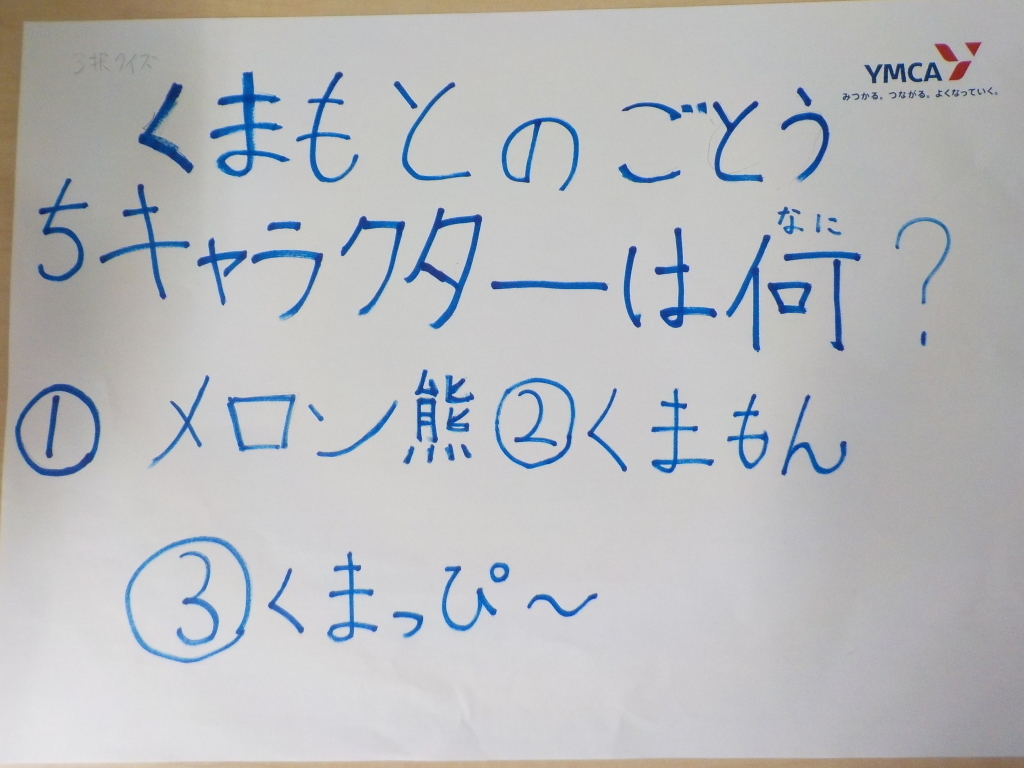 3択クイズ
YMCA
みつかる。つながる。よくなっていく。
くまもとのごとう
ちキャラクターは何？
なに
① メロン熊 ② くまもん
③ くまっぴ～